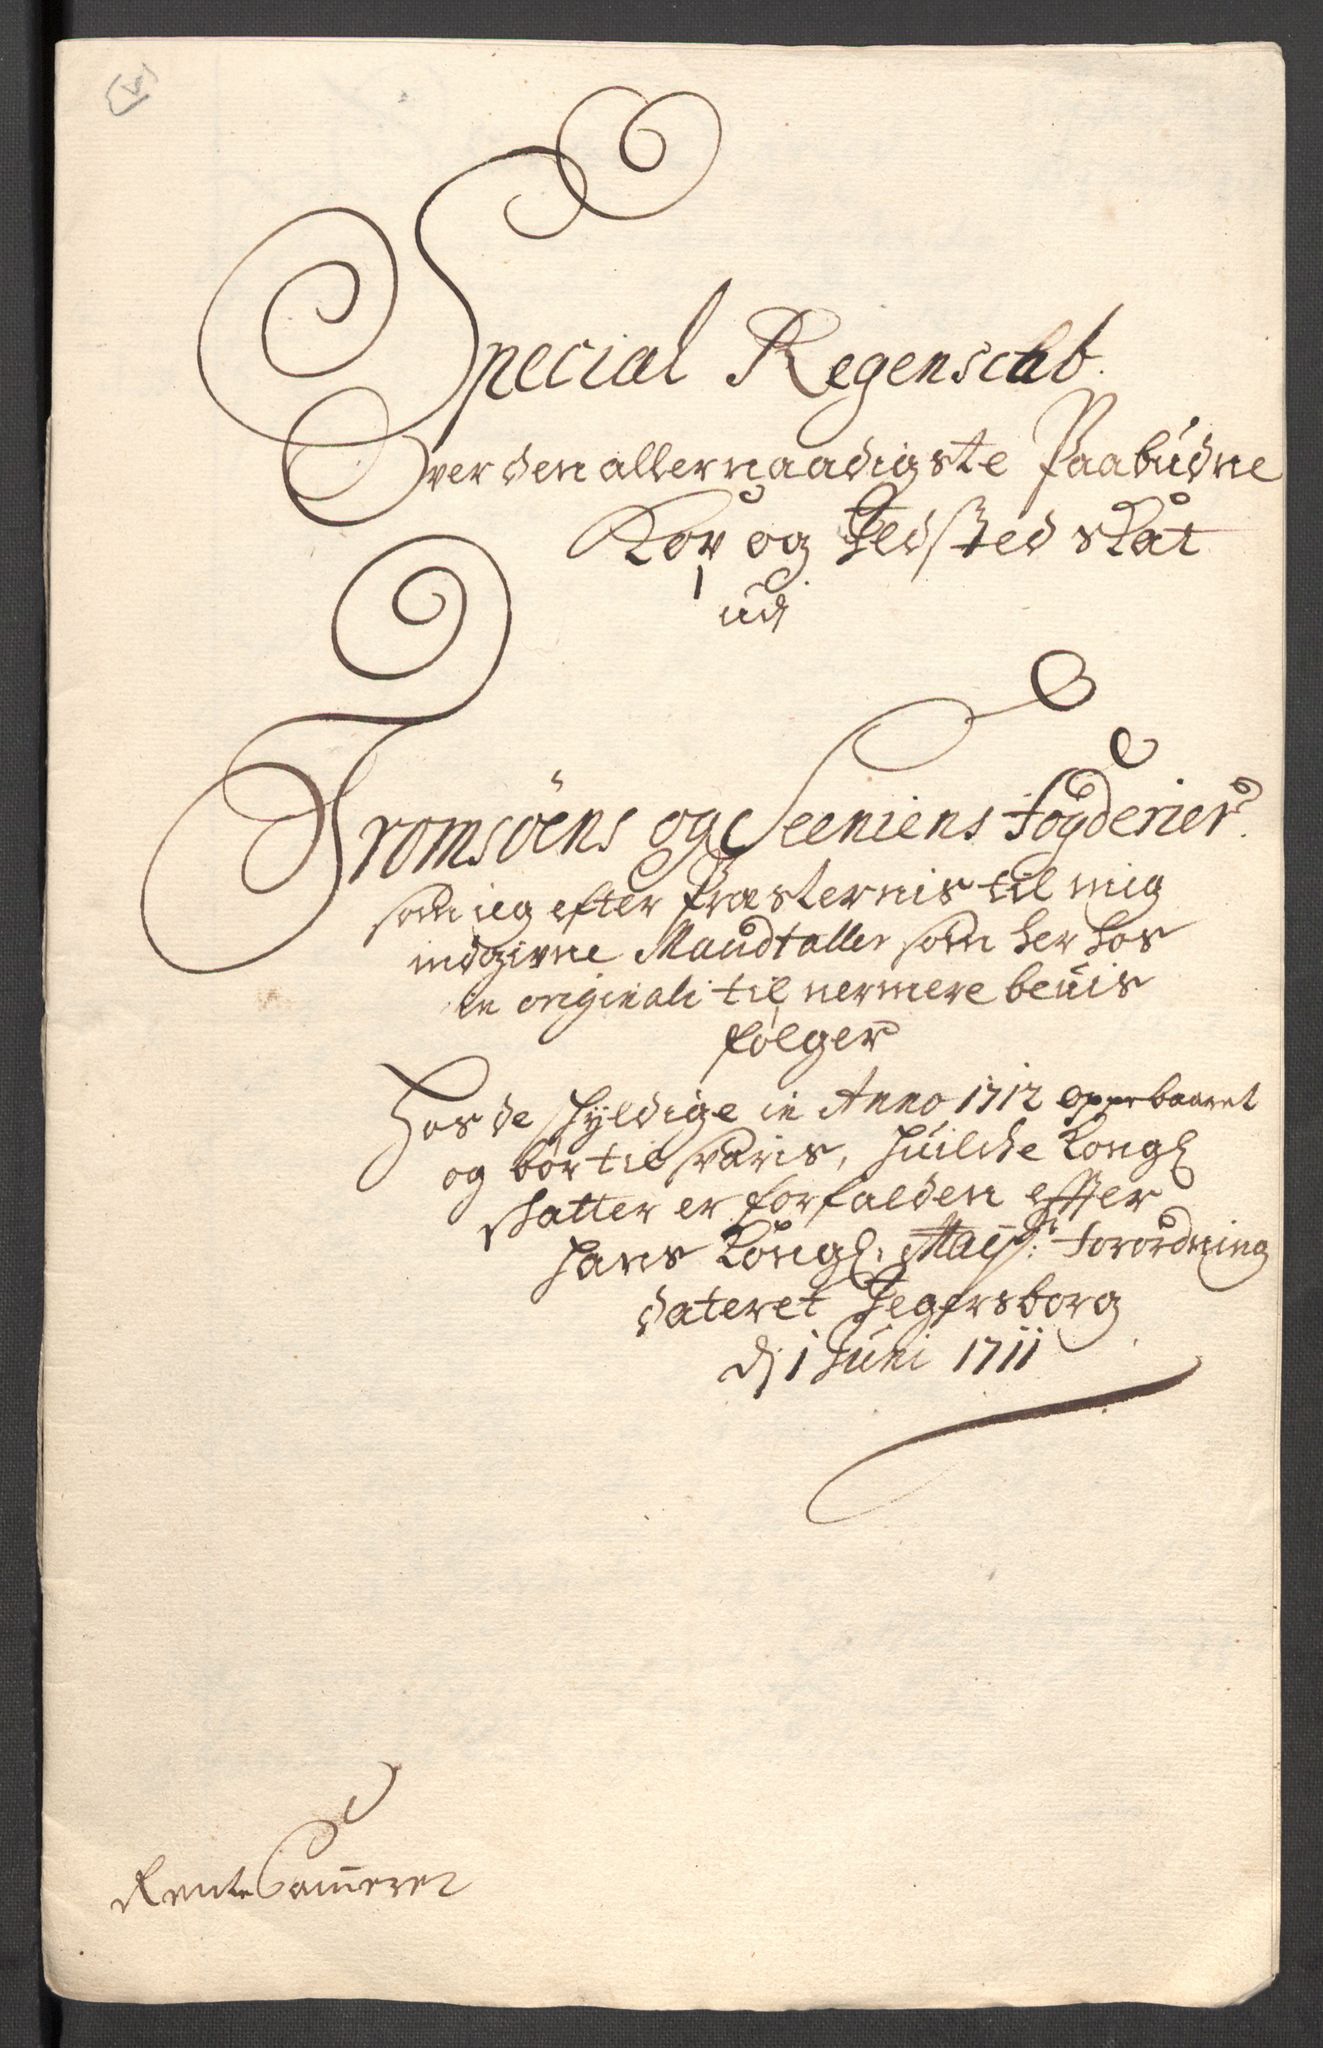 Special Regenscab.
Over den allernaadigste Paabudne
Kop og Ildsted skat
udj
Tromsöens og Seeniens Fogderier
som ieg efter Præsternis til mig
indgivne Mandtaller som her hos
in originali til nermere beviis
følger
Hos de skyldige in Anno 1712 oppebaaret
og bør til svaris, huilche Kongl
skatter er forfalden effter
Hans Kongl: Mayts: Forordning
dateret Jegersborg
dj 1 Juni 1711
Rente Cammeret